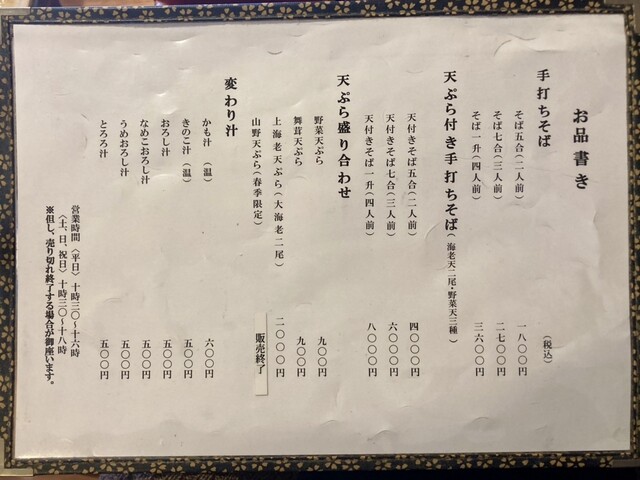 お品書き
(税込)
手打ちそば
そば五合(二人前) 一八〇〇円
そば七合(三人前) 二七〇〇円
そば一升(四人前) 三六〇〇円
天ぷら付き手打ちそば(海老天二尾・野菜天三種)
天付きそば五合(二人前) 四〇〇〇円
天付きそば七合(三人前) 六〇〇〇円
天付きそば一升(四人前) 八〇〇〇円
天ぷら盛り合わせ
野菜天ぷら 九〇〇円
舞茸天ぷら 九〇〇円
上海老天ぷら(大海老二尾) 二〇〇〇円
山野天ぷら(春季限定) 販売終了
変わり汁
かも汁 (温) 六〇〇円
きのこ汁 (温) 五〇〇円
おろし汁 五〇〇円
なめこおろし汁 五〇〇円
うめおろし汁 五〇〇円
とろろ汁 五〇〇円
営業時間 〈平日〉 十時三〇〜十六時
〈土、日、祝日〉 十時三〇〜十八時
※但し、売り切れ終了する場合が御座います。